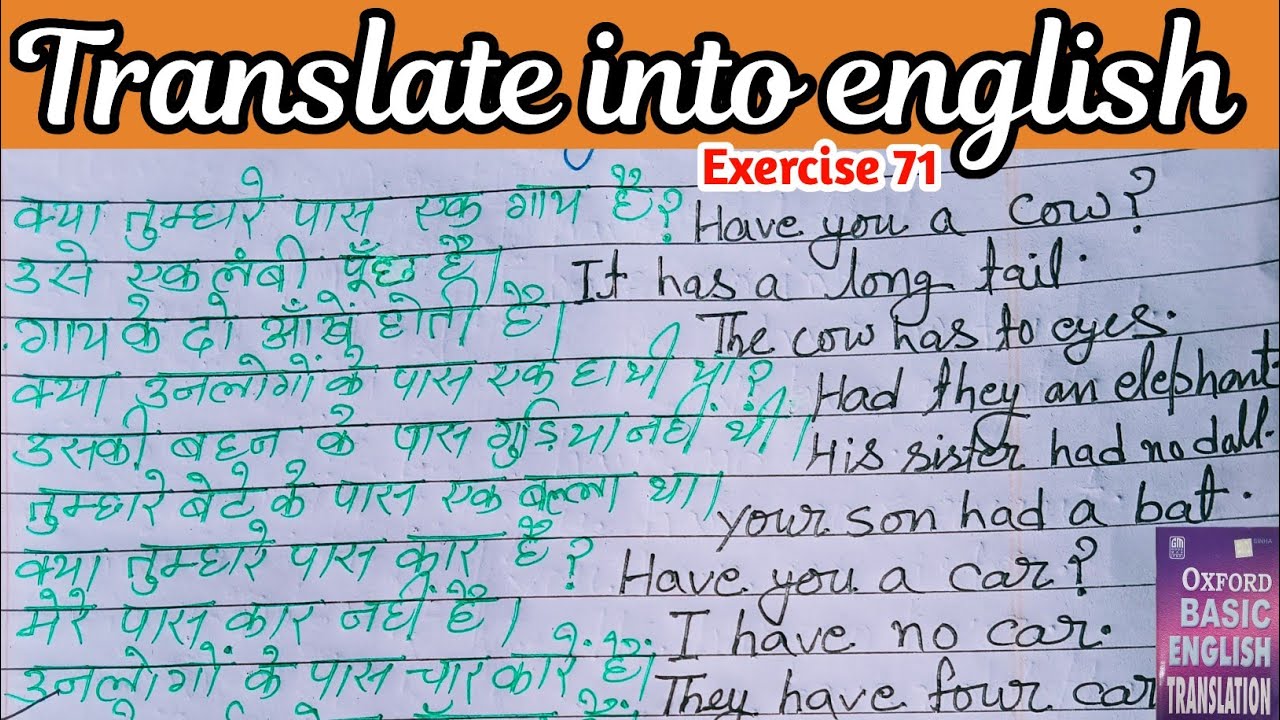 Translate into english
Exercise 71
क्या तुम्हारे पास एक गाय है? Have you a cow?
उसे एक लंबी पूँछ है। It has a long tail.
गाय के दो आँखें होती है। The cow has to eyes.
क्या उनलोगों के पास एक हाथी था? Had they an elephant
उसकी बहन के पास गुड़िया नहीं थी। His sister had no dall.
तुम्हारे बेटे के पास एक बल्ला था। your son had a bat.
क्या तुम्हारे पास कार है? Have you a car?
मेरे पास कार नहीं है। I have no car.
उनलोगों के पास चार कारें हैं। They have four car
OXFORD
BASIC
ENGLISH
TRANSLATION